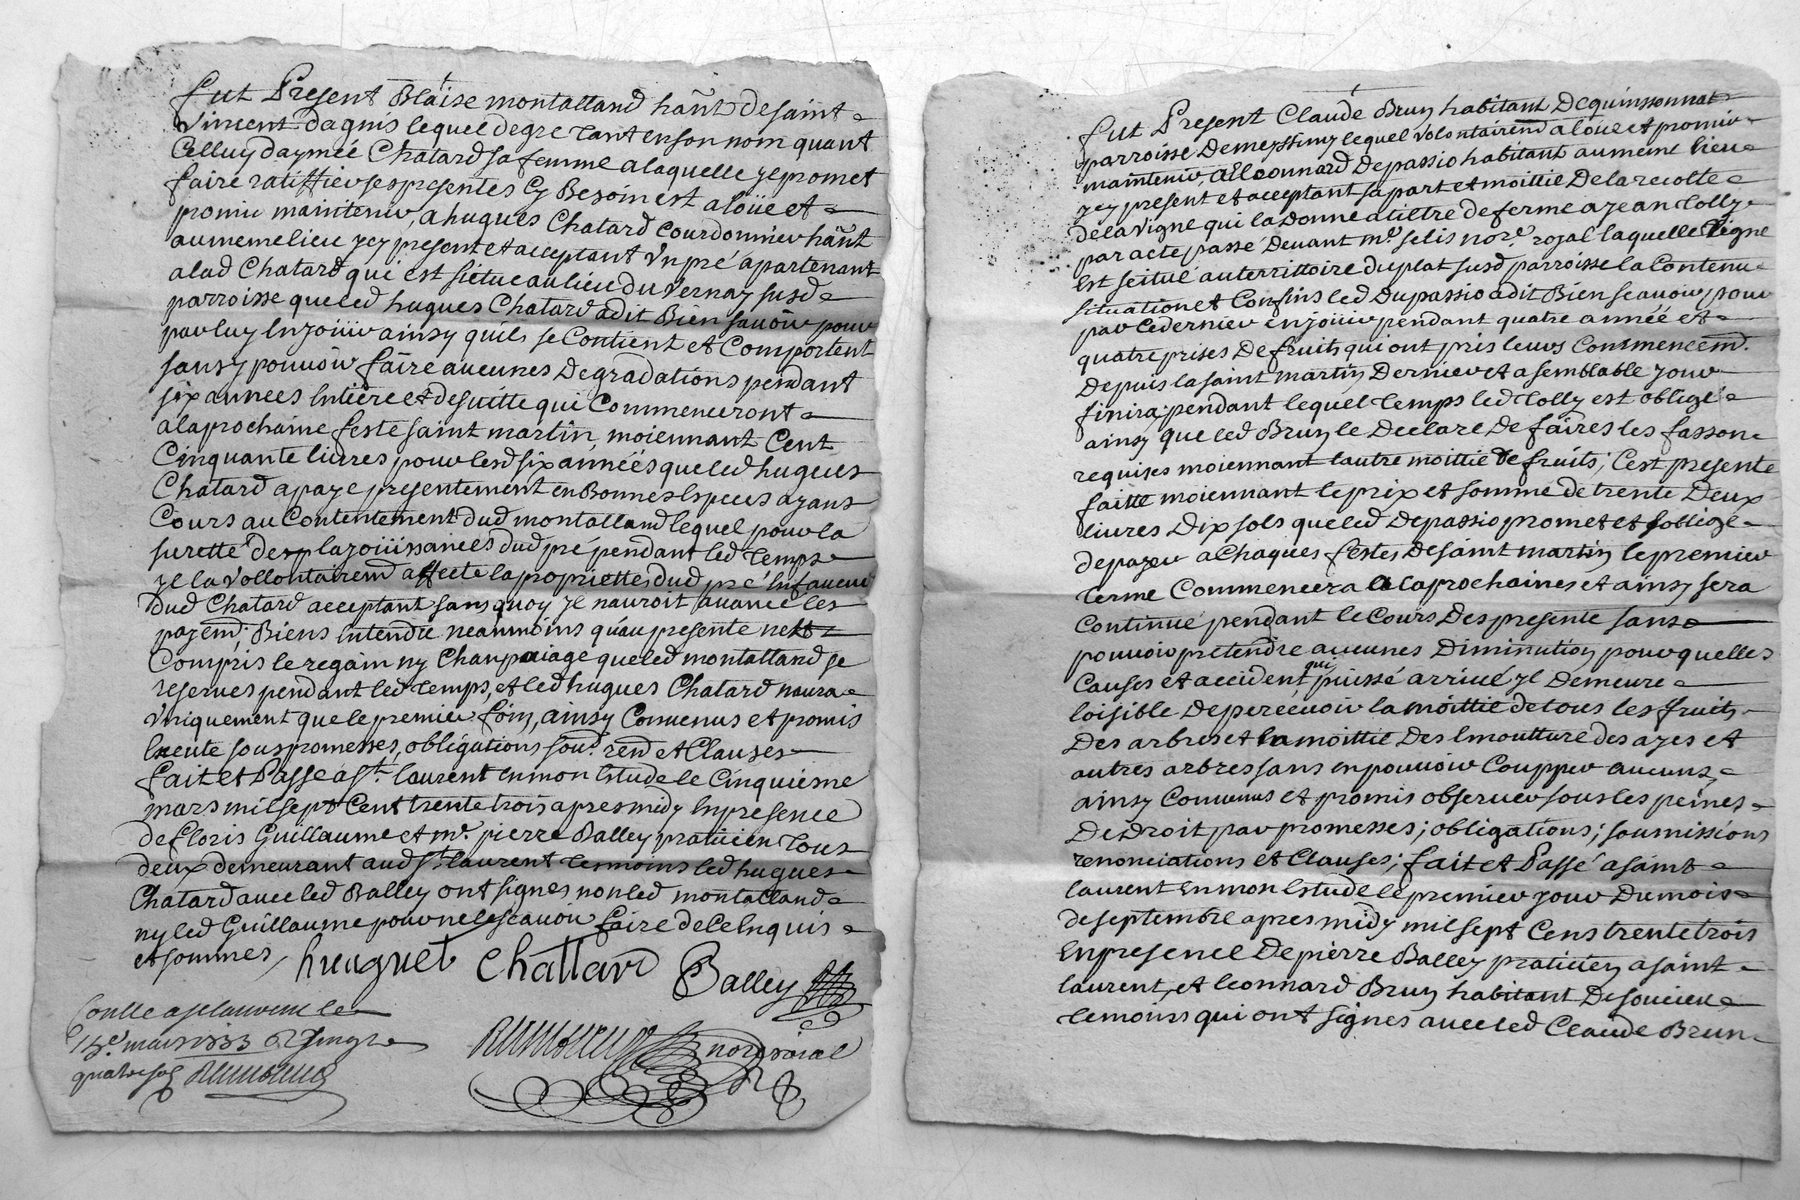 fut Present Blaise montalland hãnt de saint
Vincent dagnis lequel de gre tant en son nom quant
Celluy daymée Chatard sa femme a laquelle yl promet
faire ratiffier ses presentes Cy Besoin est a loüe et
promis maintenir, a hugues Chatard Courdonnier hãnt
au meme lieu ycy present et acceptant Vn pré apartenant
a lad Chatard qui est sietue au lieu du Vernay susd
parroisse que led hugues Chatard a dit Bien savoir pour
par luy En joüir ainsy quils se Contient et Comportent
sans y pouvoir faire aucunes Degradations pendant
six annees Entiere et de suitte qui Commenceront
a la prochaine feste saint martin, moiennant Cent
Cinquante livres pour lesd six années que led hugues
Chatard a paye presentement en Bonnes Especes ayans
Cours au Contentement dud montalland lequel pour la
surette de la joüissances dud pré pendant led temps
yl la Vollontairemd affecte la propriettes dud pré En faveur
dud Chatard acceptant sans quoy yl nauroit avancé les
payemd; Biens Entendu neanmoins quau presente nest
Compris le regain ny Champaiage que led montalland se
reserves pendant led temps, et led hugues Chatard naura
Vniquement que le premier foin, ainsy Convenus et promis
Exente sous promesses, obligations soud. rend et Clauses
fait et Passé a st. laurent en mon Estude le Cinquiesme
mars mil sept Cent trente trois apres midy En presence
de floris Guillaume et mr. pierre Balley praticien tous
deux demeurant aud st. laurent temoins led hugues
Chatard avec led Balley ont signes non led montalland
ny led Guillaume pour ne le scavoir faire de ce Enquis
et sommes, huaguet Chattard Balley
nore roial
le
15e. mars 1733
quatre sol
fut Present Claude Brun habitant De quinssonnat
parroisse De meyssimy lequel Volontairemd a loüe et promis
maintenir, a Leonnard Depassio habitant au meme lieu
ycy present et acceptant sa part et moittié De la recolte
de la Vigne qui la Donne a tiltre de ferme a jean Colly
par acte passé Devant me. selis nore. rojal laquelle Vigne
Est seitué au territtoire du plat susd parroisse la Contenu
situation et Confins led Dupassio a dit Bien scavoir pour
par Ce dernier en joüir pendant quatre année et
quatre prises De fruits qui ont pris leurs Commencemd.
Depuis la saint martin Dernier et a semblable jour
finira; pendant lequel temps led Colly est obligé
ainsy que led Brun le Declare De faires les fasson
requises moiennant lautre moittié de fruits; Cest presente
faitte moiennant le prix et somme de trente Deux
livres Dix sols que led Depassio promet et soblige
de payer a Chaques festes De saint martin le premier
terme Commencera a la prochaines et ainsy sera
Continué pendant le Cours Des presente sans
pouvoir pretendre aucunes Diminution pour quelles
Causes et accident qui puissé arrivé yl Demeure
loisible De percevoir la moittié de tous les fruits
Des arbres et la moittié Des Emoutture des ayes et
autres arbres sans en pouvoir Coupper aucuns,
ainsy Convenus et promis observer sous les peines
De Droit par promesses; obligations; soumissions
renonciations et Clauses; fait et Passé a saint
laurent En mon Estude le premier jour Du mois
de septembre apres midy mil sept Cens trente trois
En presence De pierre Balley praticien a saint
laurent, et leonnard Brun habitant De soucieu
temoins qui ont signes avec led Claude Brun